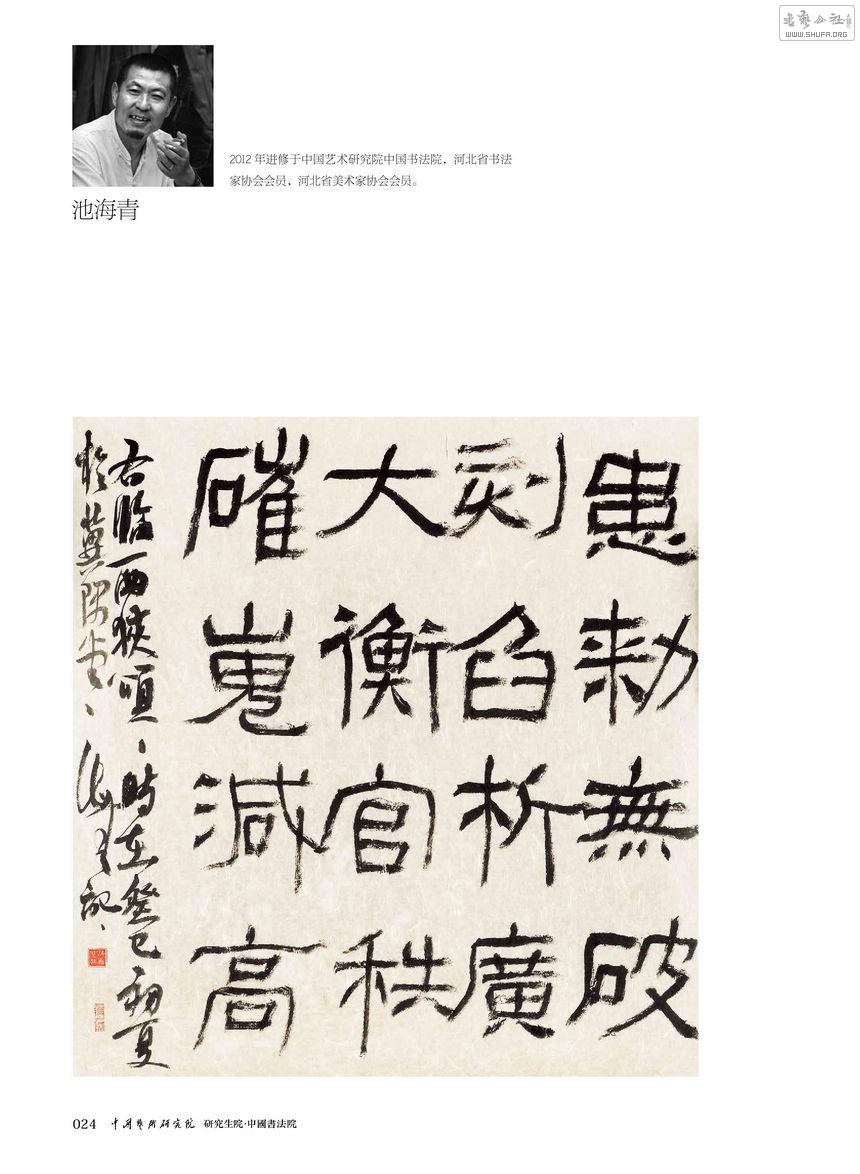 书艺公社
WWW.SHUFA.ORG
2012 年进修于中国艺术研究院中国书法院，河北省书法
家协会会员，河北省美术家协会会员。
池海青
患勅無破
刻臽析廣
大衡官秩
確嵬減高
右臨西狹頌、時在癸巳初夏
於冀陽堂、海青記、
024 中国艺术研究院 研究生院·中國書法院